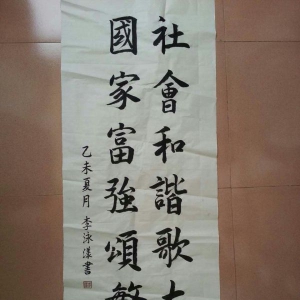 社會和諧歌
國家富強頌
乙未夏月 李泳漾書